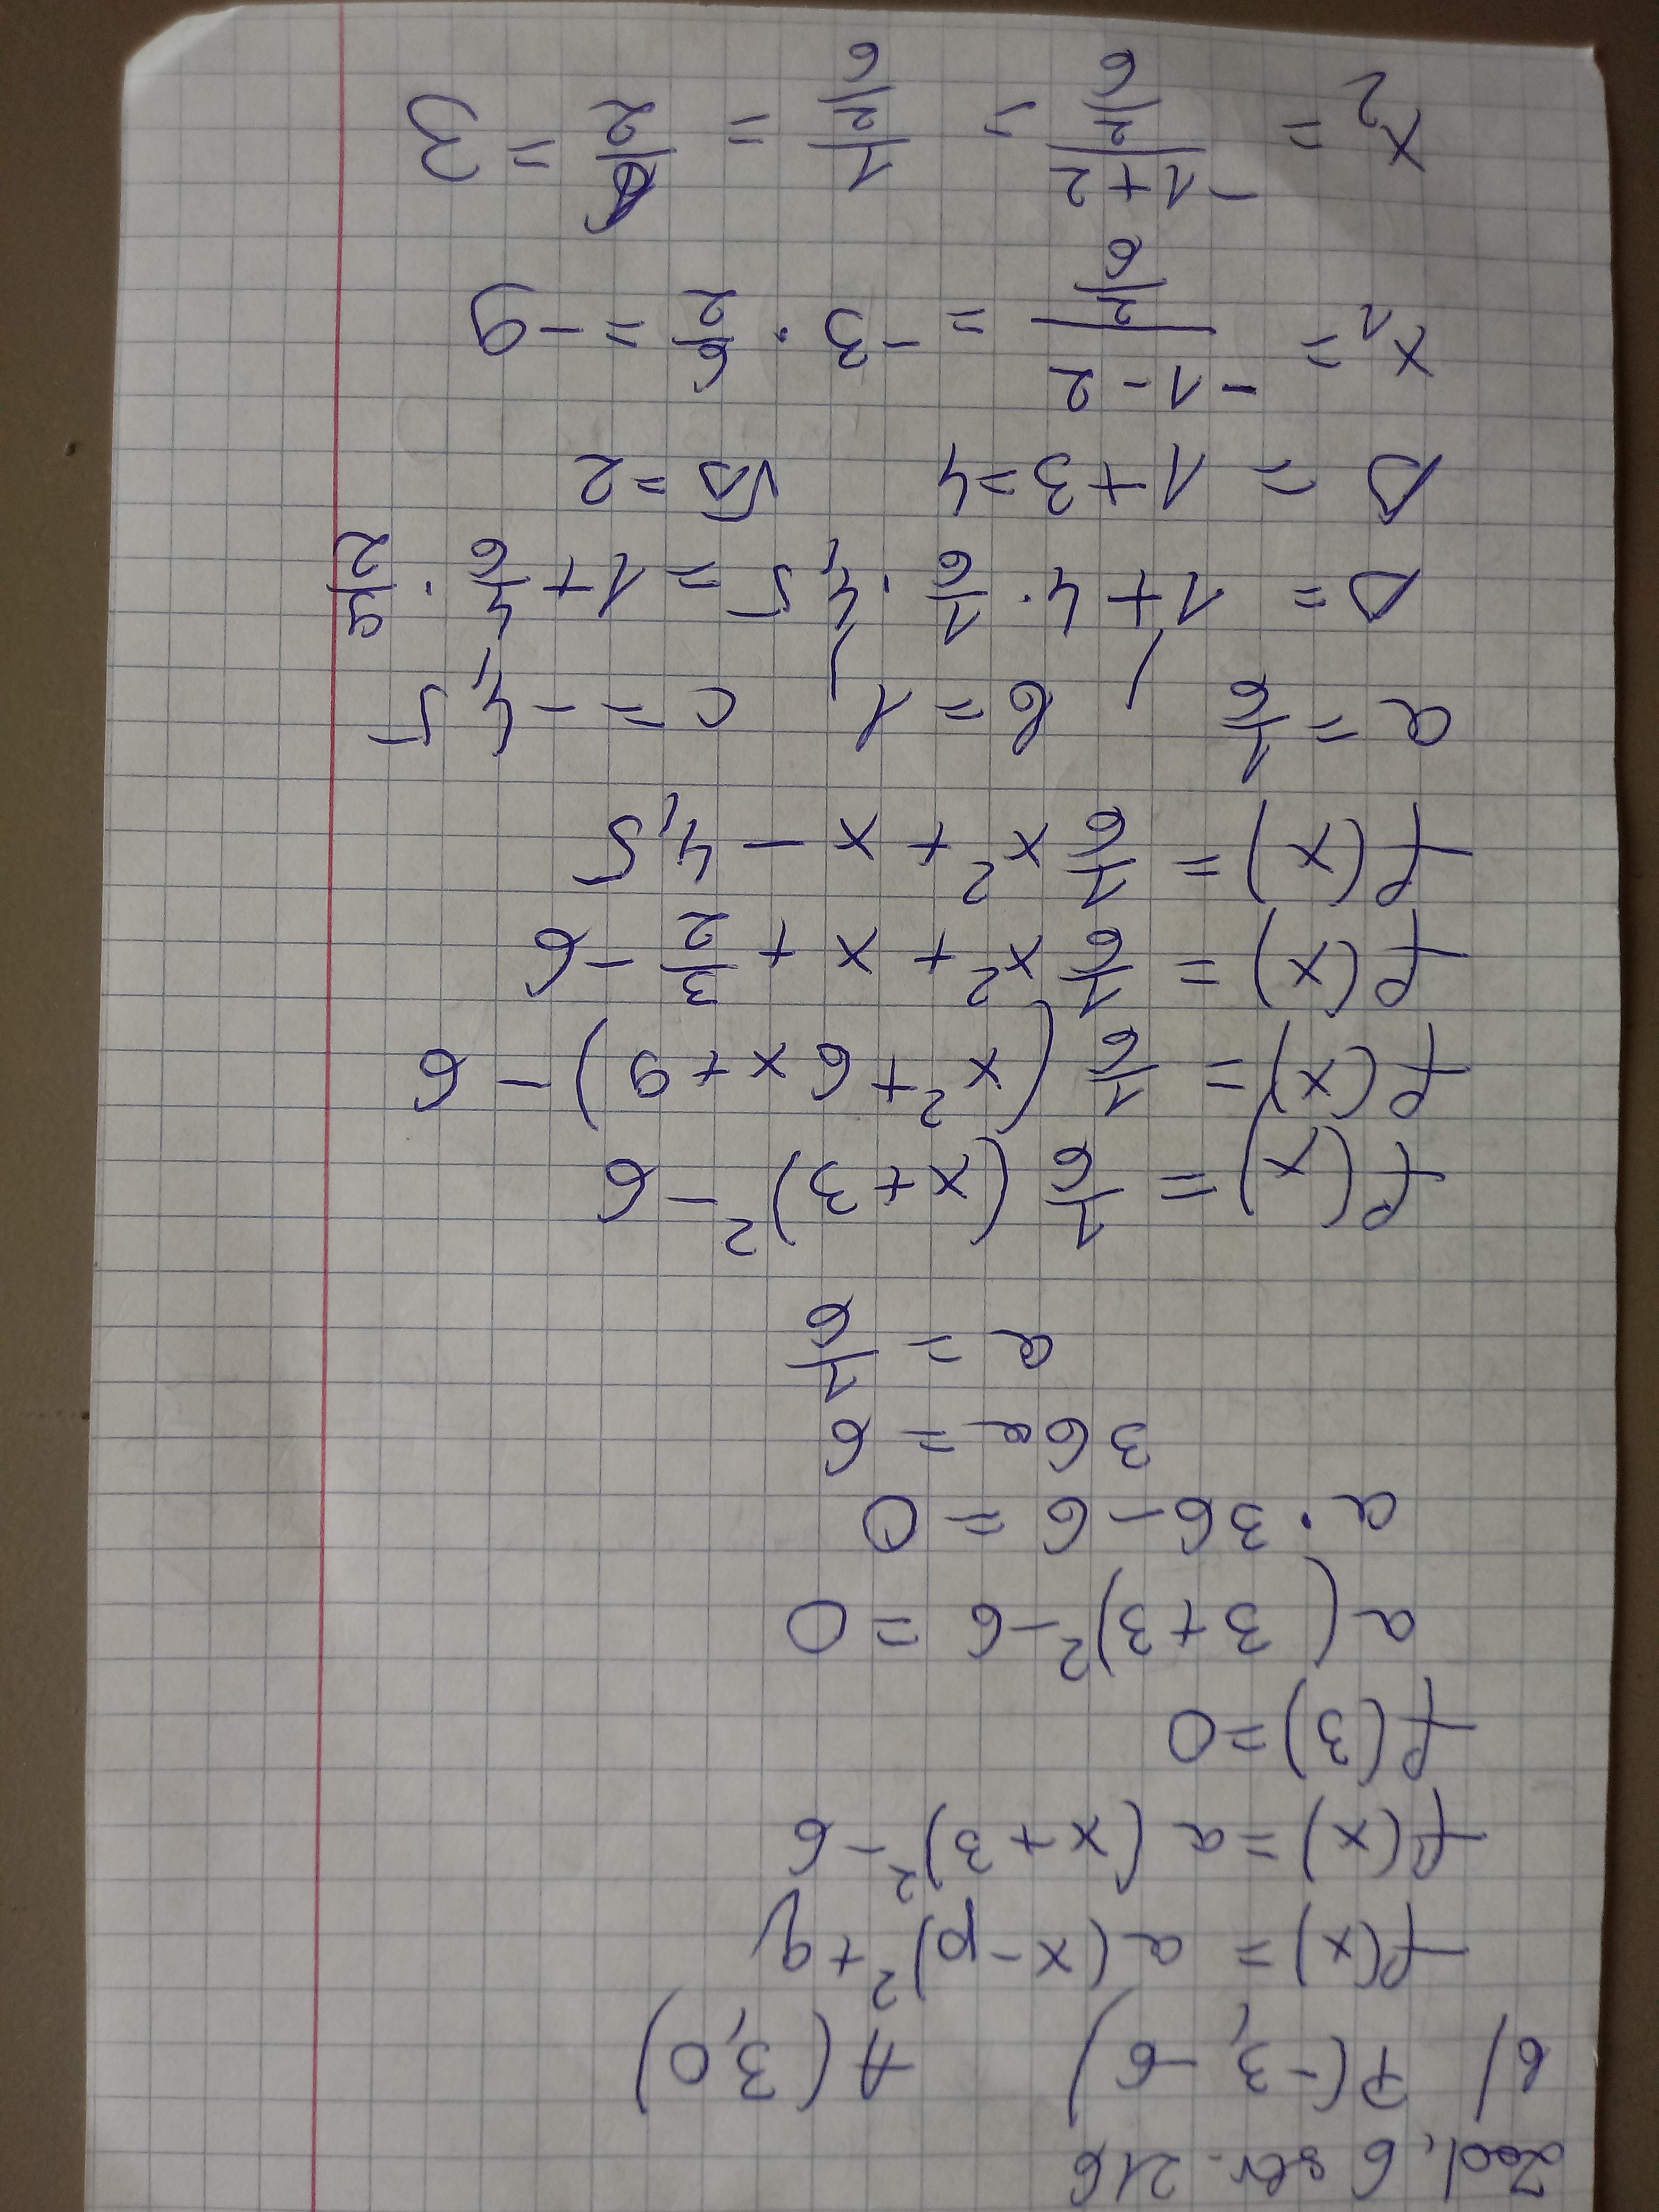 Zad. 6 str. 216
b) P(-3, -6) A(3,0)
f(x) = a(x-p)²+q
f(x) = a(x+3)²-6
f(3)=0
a(3+3)²-6 = 0
a·36-6 = 0
36a = 6
a = 1/6
f(x) = 1/6 (x+3)²-6
f(x) = 1/6 (x²+6x+9)-6
f(x) = 1/6 x²+x+3/2-6
f(x) = 1/6 x²+x-4,5
a = 1/6, b = 1, c = -4,5
Δ = 1+4·1/6·4,5 = 1+4/6·9/2
Δ = 1+3=4 √Δ=2
x₁ = (-1-2)/(2/6) = -3·6/2 = -9
x₂ = (-1+2)/(2/6) = 1/(2/6) = 6/2 = 3